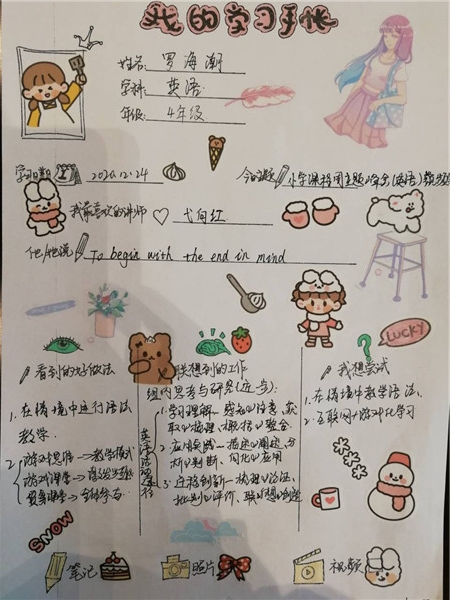 我的学习手帐
姓名: 罗海潮
学科: 英语
年级: 4年级
学习日期 2020.12.24
今日课题 小学课程
我最喜欢的讲师 弋向红
他/她说 To begin with the end in mind
LUCKY
看到的好做法
联想到的工作
我想尝试
组内思考与研磨(进一步):
1.在情境中运行语法
教学.
2.游戏思维→教学模式
游戏课堂→
→全部参与
英语活动途径
1.学习理解—感知与注意、获
取与梳理、概括与整合
2.应用实践—描述与阐述、分
析与判断、内化与应用
3.迁移创新—推理与论证、
批判与评价、联想与创造
1.在情境中教学语法.
2.互联网+游戏化学习
SNOW
笔记
照片
视频